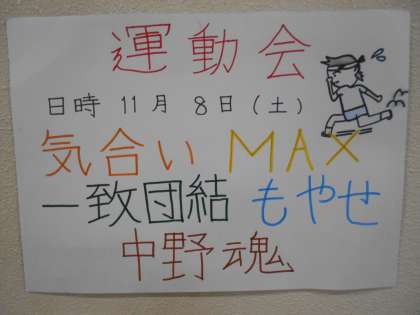 運動会
日時 11月 8日(土)
気合いMAX
一致団結 もやせ
中野魂